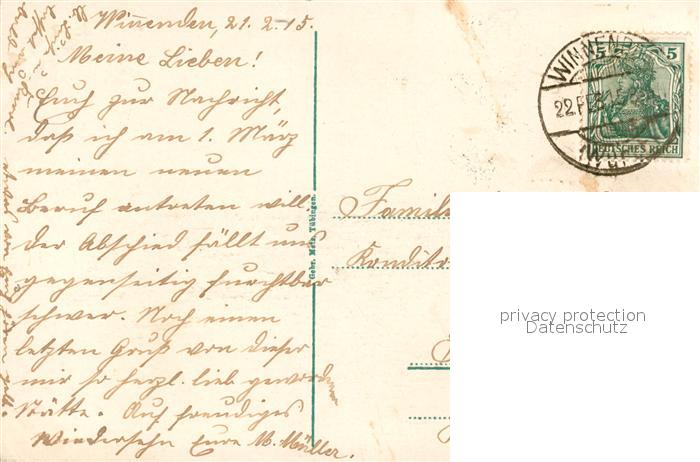 Winnenden, 21. 2. 15.
Meine Lieben!
Euch zur Nachricht,
daß ich am 1. März
meinen neuen
Beruf antreten will.
Der Abschied fällt uns
gegenseitig furchtbar
schwer. Noch einen
letzten Gruß von dieser
mir so herzl. lieb gewordenen
Stätte. Auf freudiges
Wiedersehn Eure M. Müller.
Gebr. Metz, Tübingen.
WINNENDEN
22.FEB.15
5
DEUTSCHES REICH
Familie
Kondito
privacy protection
Datenschutz